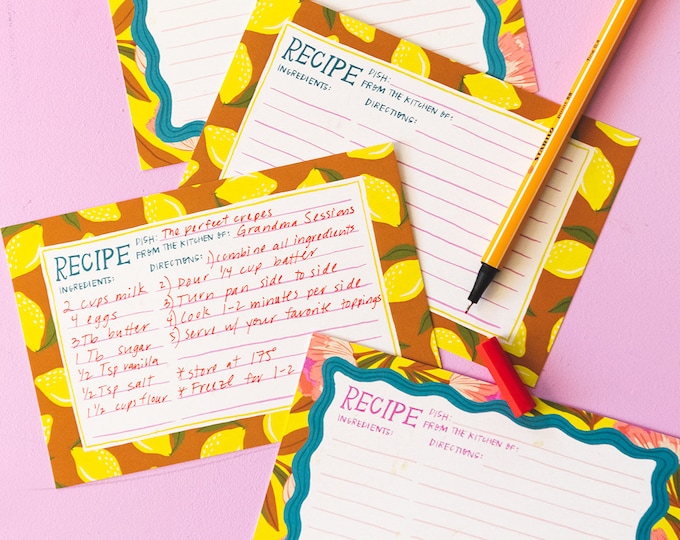 RECIPE
DISH:
FROM THE KITCHEN OF:
INGREDIENTS:
DIRECTIONS:
STABILO
RECIPE
DISH: The perfect crepes
FROM THE KITCHEN OF: Grandma Sessions
INGREDIENTS:
DIRECTIONS: 1) combine all ingredients
2 cups milk 2) Pour 1/4 cup batter
4 eggs 3) Turn pan side to side
3 Tb butter 4) Cook 1-2 minutes per side
1 Tb sugar 5) serve w/ your favorite toppings
1/2 Tsp vanilla
1/2 Tsp salt * store at 175°
1 1/2 cups flour * Freeze for 1-2
RECIPE
DISH:
FROM THE KITCHEN OF:
INGREDIENTS:
DIRECTIONS: